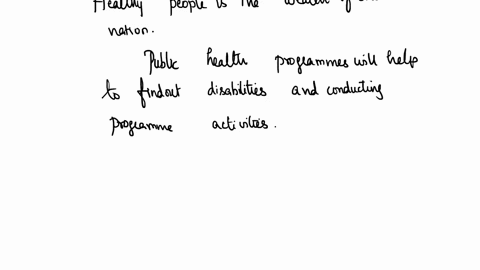 Healthy people is the wealth of
nation.
Public health programmes will help
to findout disabilities and conducting
programme activities.